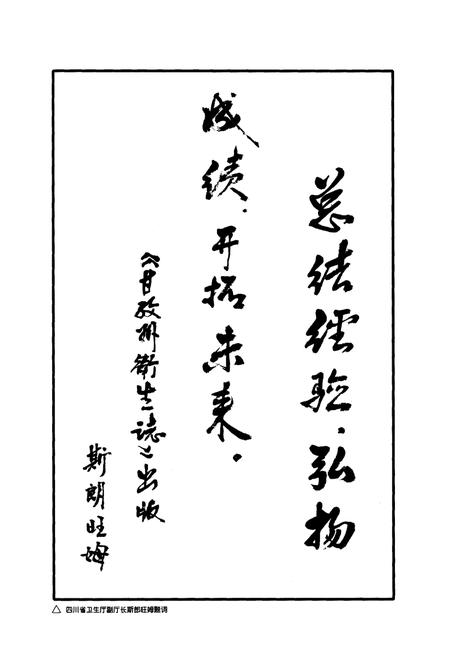 总结经验.弘扬
成绩.开拓未来.
《甘孜州衛生志》出版
斯朗旺姆
△ 四川省卫生厅副厅长斯郎旺姆题词